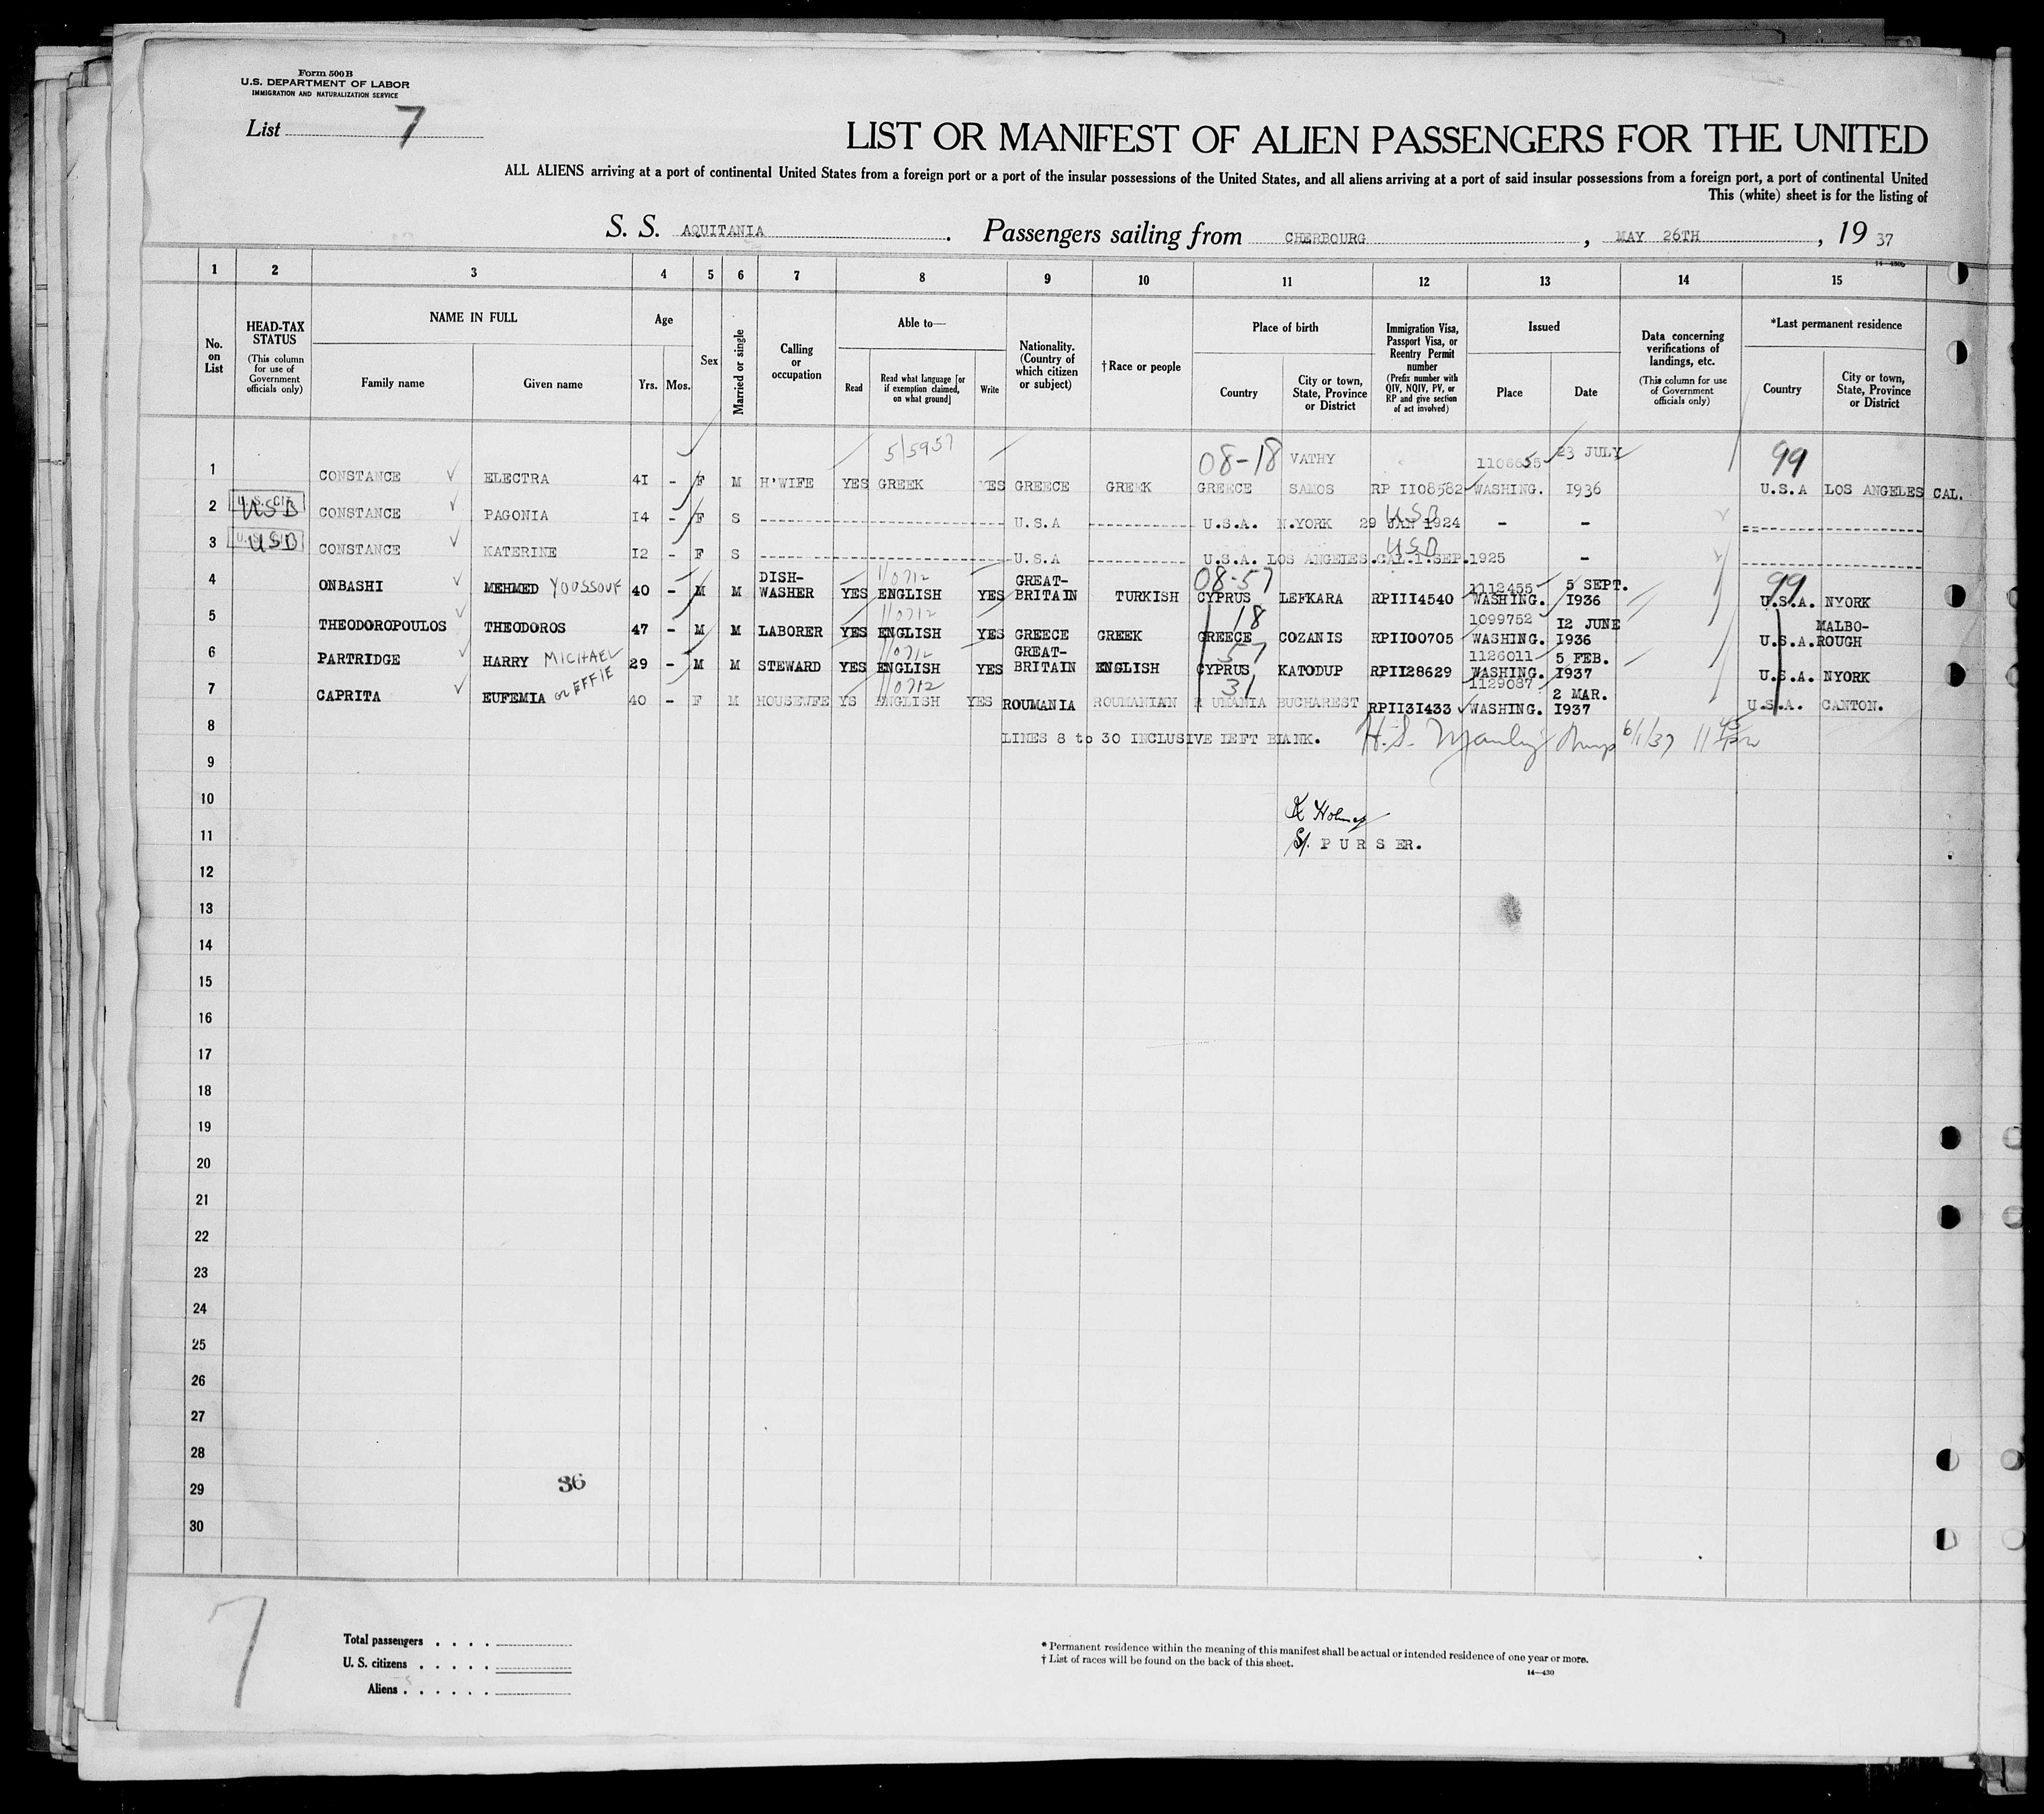 Form 500 B
U.S. DEPARTMENT OF LABOR
IMMIGRATION AND NATURALIZATION SERVICE
List 7
LIST OR MANIFEST OF ALIEN PASSENGERS FOR THE UNITED
ALL ALIENS arriving at a port of continental United States from a foreign port or a port of the insular possessions of the United States, and all aliens arriving at a port of said insular possessions from a foreign port, a port of continental United
This (white) sheet is for the listing of
S. S. AQUITANIA . Passengers sailing from CHERBOURG , MAY 26TH , 19 37
14—430b
1 2 3 4 5 6 7 8 9 10 11 12 13 14 15
No. on List
HEAD-TAX STATUS (This column for use of Government officials only)
NAME IN FULL
Family name Given name
Age
Yrs. Mos.
Sex
Married or single
Calling or occupation
Able to—
Read Read what language [or if exemption claimed, on what ground] Write
Nationality. (Country of which citizen or subject)
†Race or people
Place of birth
Country City or town, State, Province or District
Immigration Visa, Passport Visa, or Reentry Permit number (Prefix number with QIV, NQIV, PV, or RP and give section of act involved)
Issued
Place Date
Data concerning verifications of landings, etc. (This column for use of Government officials only)
*Last permanent residence
Country City or town, State, Province or District
5/5957 08-18 VATHY 23 JULY 99
1 CONSTANCE ELECTRA 41 - F M H'WIFE YES GREEK YES GREECE GREEK GREECE SAMOS RP 1108582 WASHING. 1936 U.S.A LOS ANGELES CAL.
2 USB CONSTANCE PAGONIA 14 - F S U.S.A U.S.A. N.YORK 29 JAN 1924 - -
3 USB CONSTANCE KATERINE 12 - F S U.S.A U.S.A. LOS ANGELES.CAL.1.SEP.1925 -
DISH- 1/0712 GREAT- 08-57 1112455 5 SEPT. 99
4 ONBASHI MEHMED YOUSSOUF 40 - M M WASHER YES ENGLISH YES BRITAIN TURKISH CYPRUS LEFKARA RP1114540 WASHING. 1936 U.S.A. NYORK
1/0712 18 1099752 12 JUNE MALBO-
5 THEODOROPOULOS THEODOROS 47 - M M LABORER YES ENGLISH YES GREECE GREEK GREECE COZANIS RP1100705 WASHING. 1936 U.S.A. ROUGH
1/0712 GREAT- 57 1126011 5 FEB.
6 PARTRIDGE HARRY MICHAEL 29 - M M STEWARD YES ENGLISH YES BRITAIN ENGLISH CYPRUS KATODUP RP1128629 WASHING. 1937 U.S.A. NYORK
1/0712 31 1129087 2 MAR.
7 CAPRITA EUFEMIA or EFFIE 40 - F M HOUSEWFE YS ENGLISH YES ROUMANIA ROUMANIAN R UMANIA BUCHAREST RP1131433 WASHING. 1937 U.S.A. CANTON.
8 LINES 8 to 30 INCLUSIVE LEFT BLANK. 6/1/37
9
10
11 PURSER.
12
13
14
15
16
17
18
19
20
21
22
23
24
25
26
27
28
29 36
30
7
Total passengers
U. S. citizens
Aliens
* Permanent residence within the meaning of this manifest shall be actual or intended residence of one year or more.
† List of races will be found on the back of this sheet.
14—430